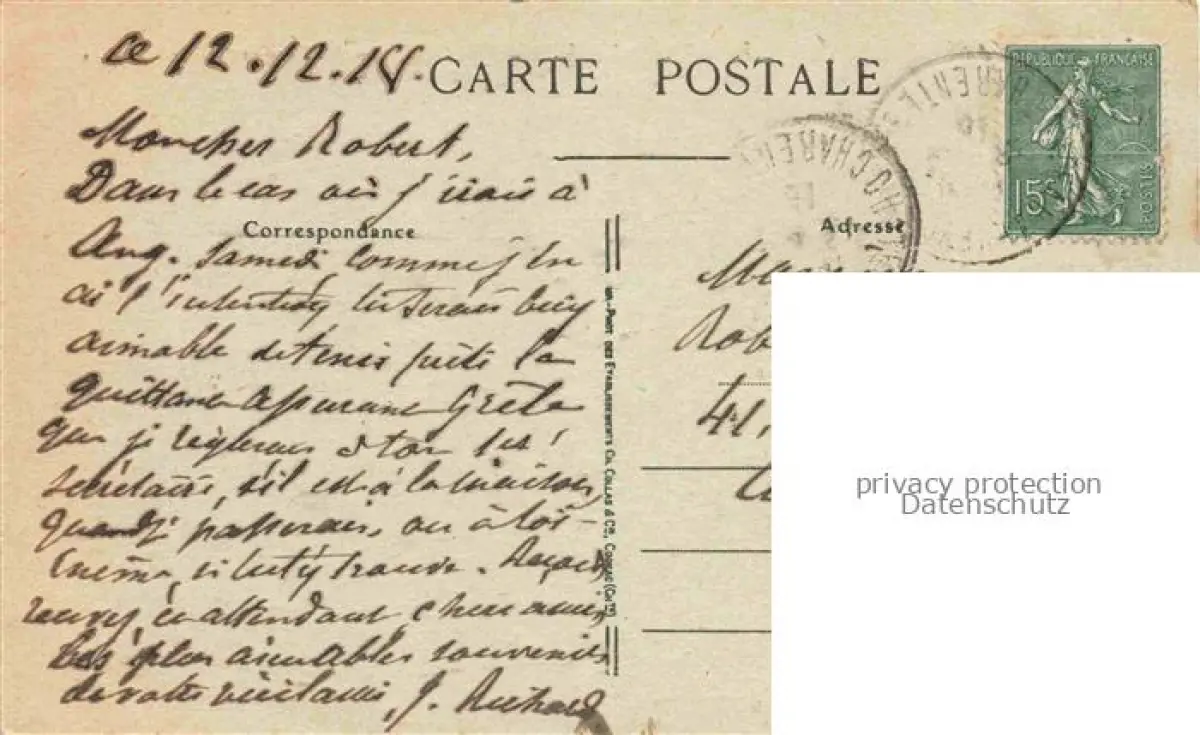 ce 12.12.18.
CARTE POSTALE
RÉPUBLIQUE FRANÇAISE
15c
POSTES
CHARENTE
Mon cher Robert,
Dans le cas où j'irais à
Correspondance
Adresse
Ang. samedi, comme j'en
ai l'intention, tu serais bien
aimable de tenir prête la
quittance assurance Grêle
que je réglerais à ton
secrétaire, s'il est à la maison,
quand je passerais, ou à toi-
même, si tu t'y trouve.
recevez, en attendant, chers amis,
les plus aimables souvenirs
de votre vieil ami, J. Richard
Rob
41,
IMP. PHOT. DES ÉTABLISSEMENTS CH. COLLAS & Cie, COGNAC (CHTE)
privacy protection
Datenschutz